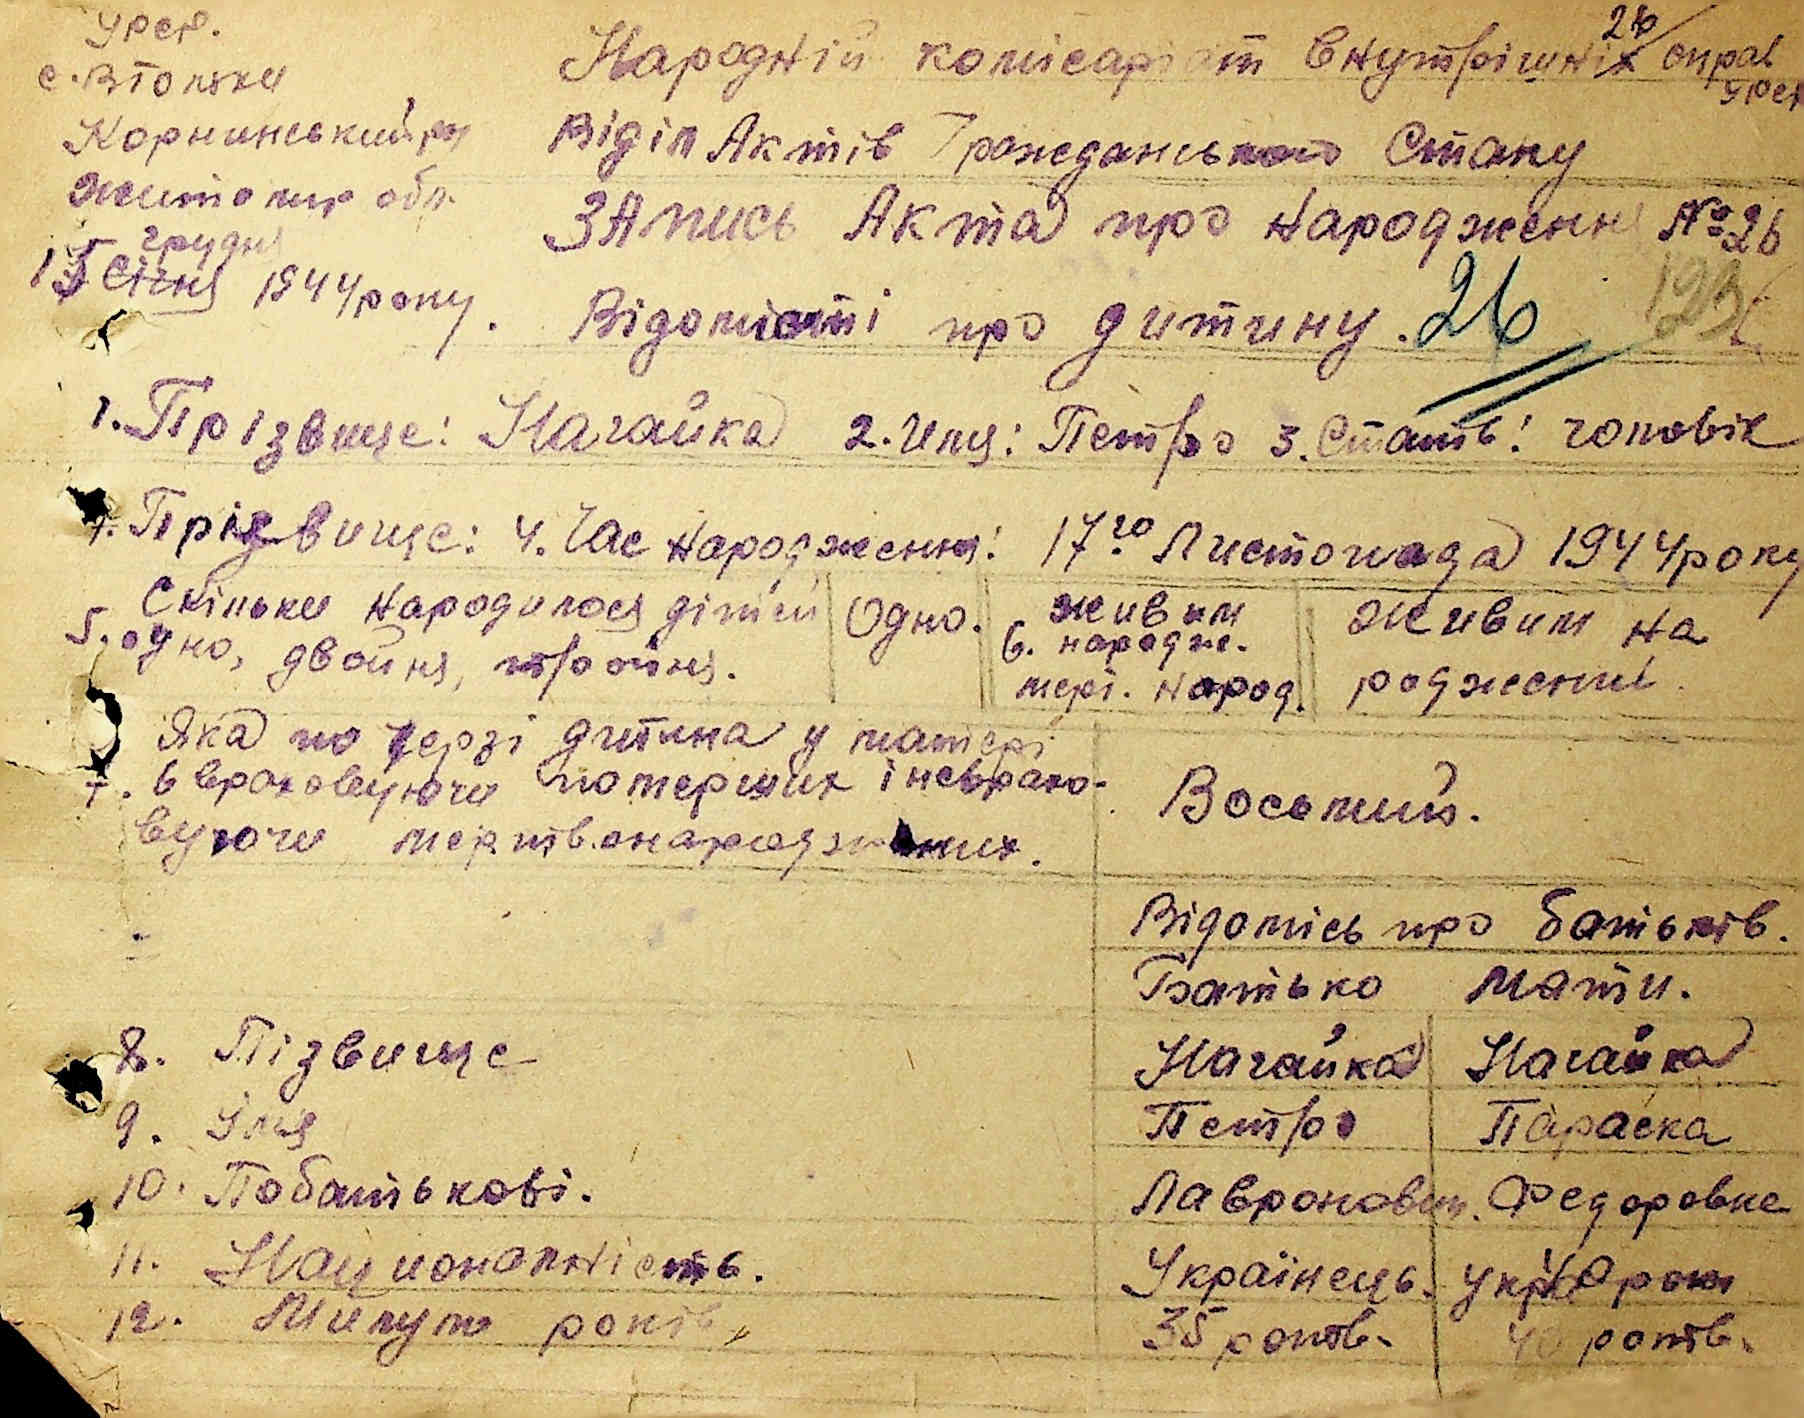 УРСР.
с. Втольки
Корнинський р-н
Житомир обл.
15 грудня
Січня 1944 року.
26
Народній комісаріат внутрішніх справ
УРСР
Відділ Актів Гражданського Стану
ЗАпись Акта про народження № 26
Відомості про дитину. 26
123
1. Прізвище: Нагайка 2. Имя: Петро 3. Стать: чоловік
1. Прізвище: 4. Час народження: 17го Листопада 1944 року
5. Скільки народилося дітей
одно, двойня, тройня.
Одно.
6. живим
народж.
мерт. народ.
живим на
роджений
7. Яка по черзі дитина у матері
враховуючи померших і невrахо-
вуючи мертвонароджених.
Восьмий.
Відомісь про батьків.
Батько Мати.
8. Пізвище Нагайка Нагайка
9. Імя Петро Параска
10. Побатькові. Лавронович. Федоровне
11. Национальність. Українець. укр 40 рок
12. Минуло років, 35 років. 40 років.